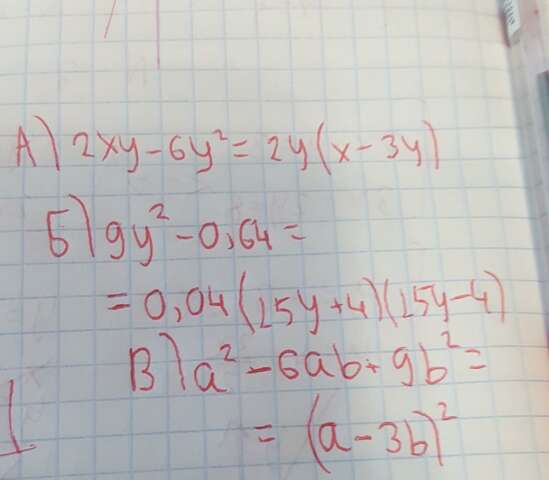 А) 2xy - 6y² = 2y(x - 3y)
Б) 9y² - 0,64 =
= 0,04(15y + 4)(15y - 4)
В) a² - 6ab + 9b² =
= (a - 3b)²